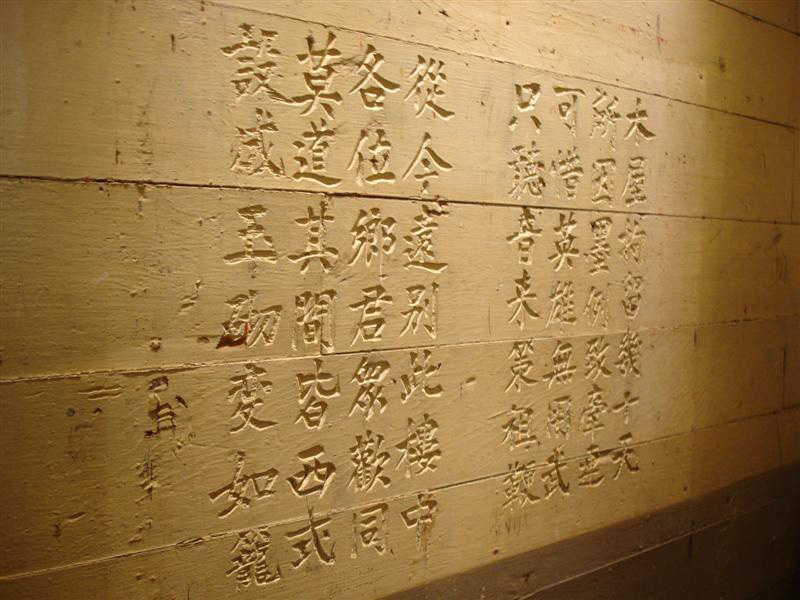 木屋拘留幾十天
所囙墨例致牽連
可惜英雄無用武
只聽音来策祖鞭
從今遠別此樓中
各位鄉君眾歡同
莫道其間皆西式
設成玉砌變如籠